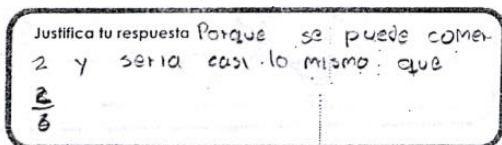 Justifica tu respuesta Porque se puede comer
2 y seria casi lo mismo que
2/6